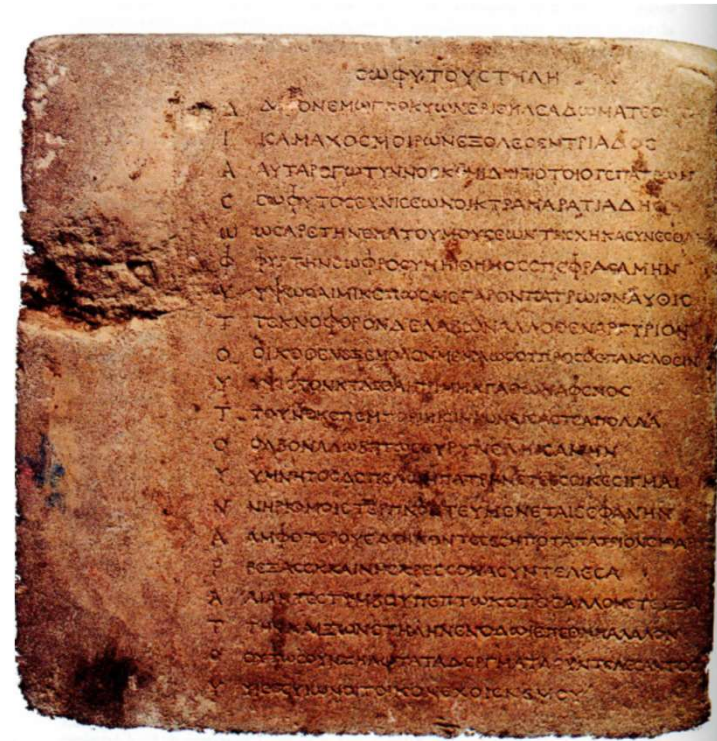 ϹΩΦΥΤΟΥϹΤΗΛΗ
Δ ΔΗΡΟΝΕΜΩΓΚΟΚΥΩΝΕΡΙΘΗΛΕΑΔΩΜΑΤΕΟ
Ι ΙϹΑΜΑΧΟϹΜΟΙΡΩΝΕΞΟΛΕϹΕΝΤΡΙΑΔΟϹ
Α ΑΥΤΑΡΕΓΩΤΥΝΝΟϹΚΟΜΙΔΗΙΒΙΟΤΟΙΟΤΕΠΑΤΡΩΝ
Ϲ ϹΩΦΥΤΟϹΕΥΝΙϹΕΩΝΟΙΚΤΡΑΝΑΡΑΤΙΑΔΗϹ
Ω ΩϹΑΡΕΤΗΝΕΚΑΤΟΥΜΟΥϹΕΩΝΤΗϹΧΗΚΑϹΥΝΕϹΘΛΗΙ
Φ ΦΥΡΤΗΝϹΩΦΡΟϹΥΝΗΙΘΗΜΟϹΕΠΕΦΡΑϹΑΜΗΝ
Υ ΥΨΩϹΑΙΜΙΚΕΠΩϹΜΕΓΑΡΟΝΠΑΤΡΩΙΟΝΑΥΘΙϹ
Τ ΤΕΚΝΟΦΟΡΟΝΔΕΛΑΒΩΝΑΛΛΟΘΕΝΑΡΓΥΡΙΟΝ
Ο ΟΙΚΟΘΕΝΕΞΕΜΟΛΟΝΜΕΜΑΩϹΟΥΠΡΟϹΘΕΠΑΝΕΛΘΕΙΝ
Υ ΥΨΙϹΤΟΝΚΤΑϹΘΑΙΠΡΙΜΜΑΓΑΘΩΝΑΦΕΝΟϹ
Τ ΤΟΥΝΕΚΕΠΕΜΠΟΡΙΗΙϹΙΝΙΩΝΕΙϹΑϹΤΕΑΠΟΛΛΑ
Ο ΟΛΒΟΝΑΛΩΒΗΤΟϹΕΥΡΥΝΕΛΗΙϹΑΜΗΝ
Υ ΥΜΝΗΤΟϹΔΕΠΕΛΩΝΠΑΤΡΗΝΕΤΕΕϹϹΙΝΕϹΙΓΜΑΙ
Ν ΝΗΡΙΘΜΟΙϹΤΕΡΠΝΟϹΤΕΥΜΕΝΕΤΑΙϹΕΦΑΝΗΝ
Α ΑΜΦΟΤΕΡΟΥϹΔΟΙΚΟΝΤΕϹΕϹΗΠΟΤΑΠΑΤΡΙΟΝΕΙΘΑΡ
Ρ ΡΕΞΑϹΕΚΚΑΙΝΗϹΚΡΕϹϹΟΝΑϹΥΝΤΕΛΕϹΑ
Α ΑΙΑΝΤΕϹΤΥΜΒΟΥΠΕΠΤΩΚΟΤΟϹΑΛΛΟΝΕΤΕΥΞΑ
Τ ΤΗΝΚΑΙΖΩΝϹΤΗΛΗΝΕΝΟΔΩΙΕΠΕΘΗΚΑΛΑΛΟΝ
Ο ΟΥΤΩϹΟΥΝΖΗΛΩΤΑΤΑΔΕΡΓΜΑΤΑϹΥΝΤΕΛΕϹΑΝΤΟϹ
Υ ΥΙΕΕϹΥΙΩΝΟΙΤΟΙΚΟΝΕΧΟΙΕΝΕΜΟΥ